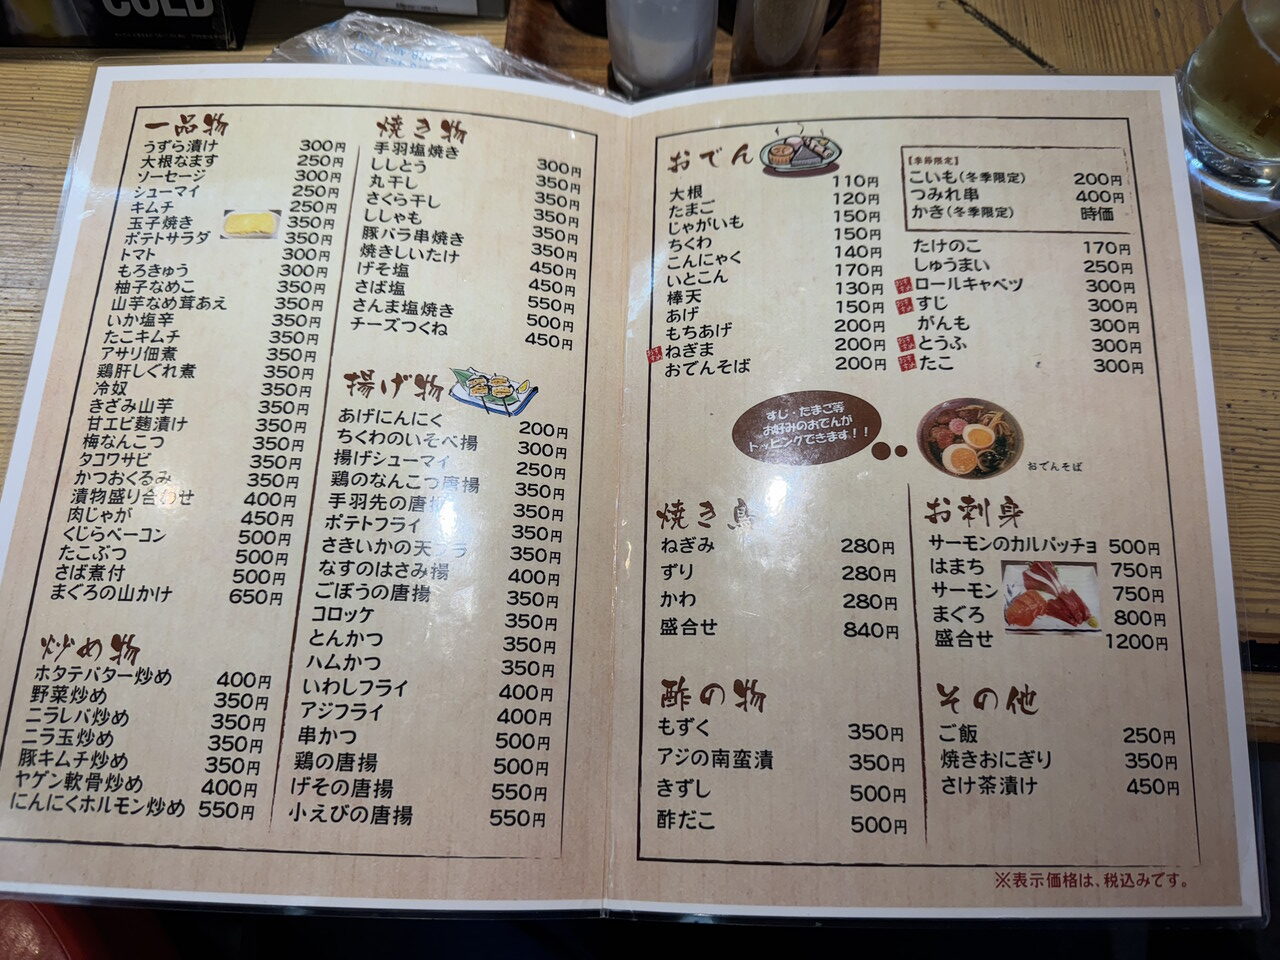 一品物
うずら漬け 300円
大根なます 250円
ソーセージ 300円
シューマイ 250円
キムチ 250円
玉子焼き 350円
ポテトサラダ 350円
トマト 300円
もろきゅう 300円
柚子なめこ 350円
山芋なめ茸あえ 350円
いか塩辛 350円
たこキムチ 350円
アサリ佃煮 350円
鶏肝しぐれ煮 350円
冷奴 350円
きざみ山芋 350円
甘エビ麹漬け 350円
梅なんこつ 350円
タコワサビ 350円
かつおくるみ 350円
漬物盛り合わせ 400円
肉じゃが 450円
くじらベーコン 500円
たこぶつ 500円
さば煮付 500円
まぐろの山かけ 650円
炒め物
ホタテバター炒め 400円
野菜炒め 350円
ニラレバ炒め 350円
ニラ玉炒め 350円
豚キムチ炒め 350円
ヤゲン軟骨炒め 400円
にんにくホルモン炒め 550円
焼き物
手羽塩焼き 300円
ししとう 350円
丸干し 350円
さくら干し 350円
ししゃも 350円
豚バラ串焼き 350円
焼きしいたけ 450円
げそ塩 450円
さば塩 550円
さんま塩焼き 500円
チーズつくね 450円
揚げ物
あげにんにく 200円
ちくわのいそべ揚 300円
揚げシューマイ 250円
鶏のなんこつ唐揚 350円
手羽先の唐揚 350円
ポテトフライ 350円
さきいかの天プラ 350円
なすのはさみ揚 400円
ごぼうの唐揚 350円
コロッケ 350円
とんかつ 350円
ハムかつ 350円
いわしフライ 400円
アジフライ 400円
串かつ 500円
鶏の唐揚 500円
げその唐揚 550円
小えびの唐揚 550円
おでん
大根 110円
たまご 120円
じゃがいも 150円
ちくわ 150円
こんにゃく 140円
いとこん 170円
棒天 130円
あげ 150円
もちあげ 200円
ねぎま 200円
おでんそば 200円
【季節限定】
こいも(冬季限定) 200円
つみれ串 400円
かき(冬季限定) 時価
たけのこ 170円
しゅうまい 250円
ロールキャベツ 300円
すじ 300円
がんも 300円
とうふ 300円
たこ 300円
すじ・たまご等
お好みのおでんが
トッピングできます!!
おでんそば
焼き鳥
ねぎみ 280円
ずり 280円
かわ 280円
盛合せ 840円
お刺身
サーモンのカルパッチョ 500円
はまち 750円
サーモン 750円
まぐろ 800円
盛合せ 1200円
酢の物
もずく 350円
アジの南蛮漬 350円
きずし 500円
酢だこ 500円
その他
ご飯 250円
焼きおにぎり 350円
さけ茶漬け 450円
※表示価格は、税込みです。
COLD